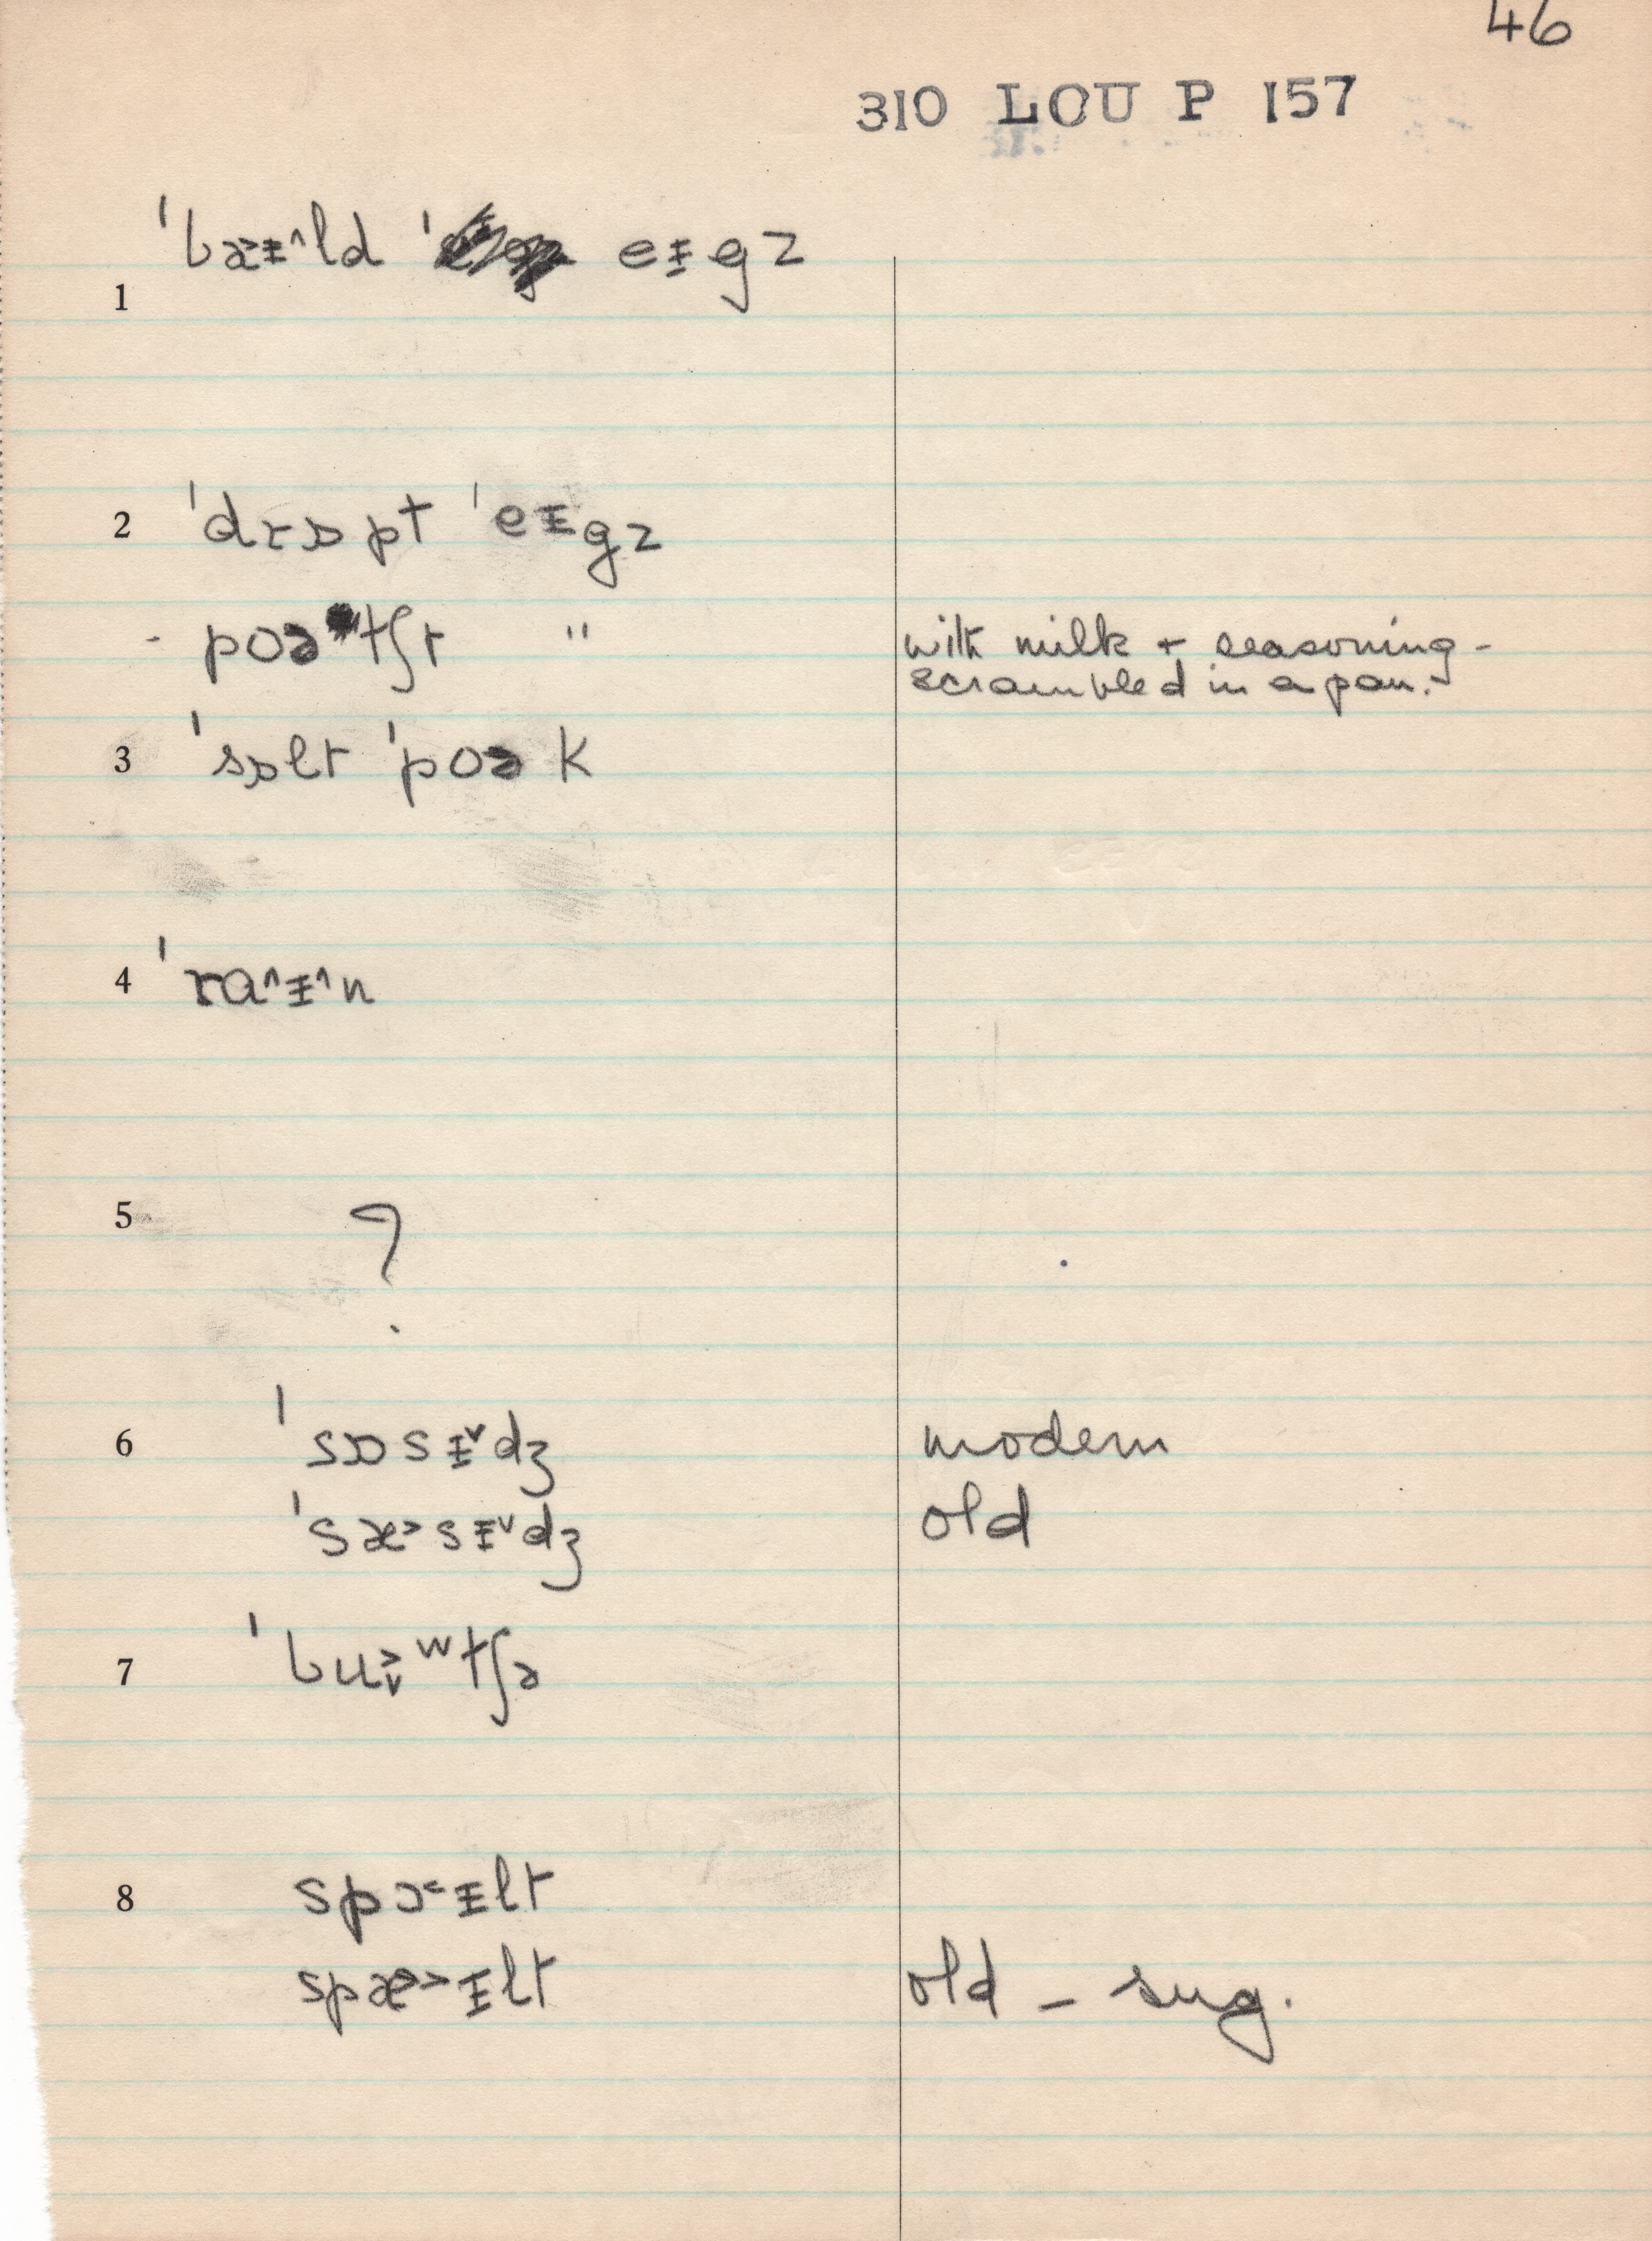 46
310 LOU P 157
1 ˈbæ˃ɪ̵˄ld ˈ eɪ̵gz
2 ˈdrɒpt ˈeɪ̵gz
- poətʃt "
with milk + seasoning -
scrambled in a pan.
3 ˈsɒlt ˈpoək
4 ˈra˄ɪ̵˄n
5 ?
6 ˈsɒsɪ̵˅dʒ modern
ˈsæ˃sɪ̵˅dʒ old
7 ˈbu˃˅ʷtʃə
8 spɔ˂ɪ̵lt
spæ˃˃ɪ̵lt old - sug.